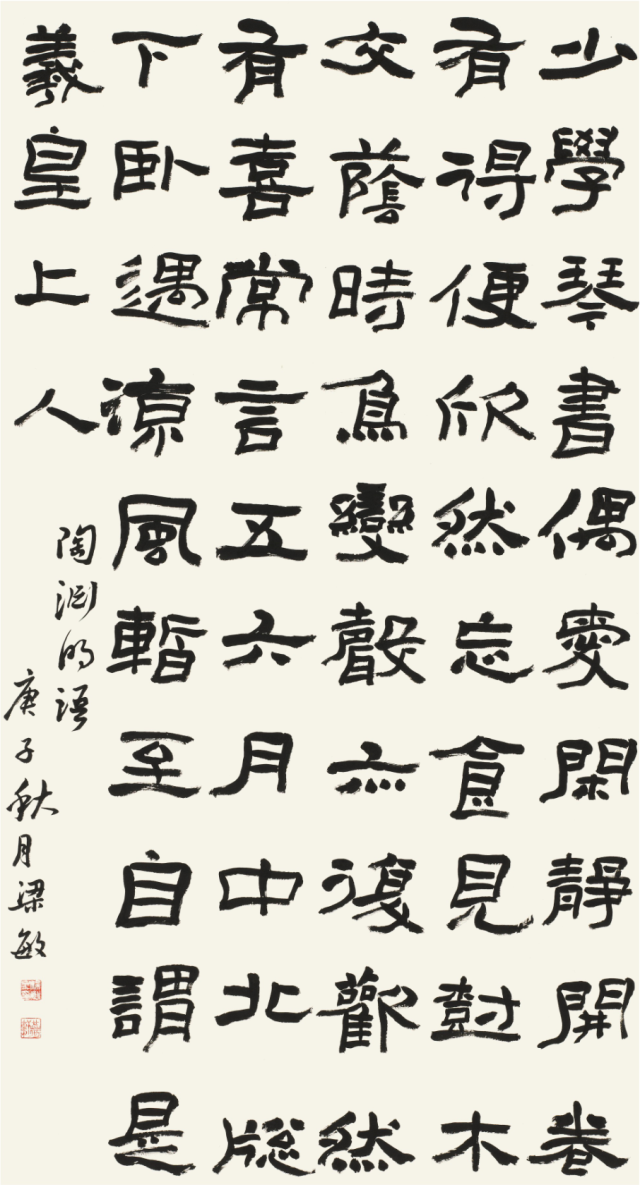 少學琴書偶愛閑靜開卷
有得便欣然忘食見封木
交蔭時鳥變聲亦復歡然
有喜常言五六月中北牕
下卧遇涼風暫至自謂是
羲皇上人
陶淵明語
庚子秋月梁敏